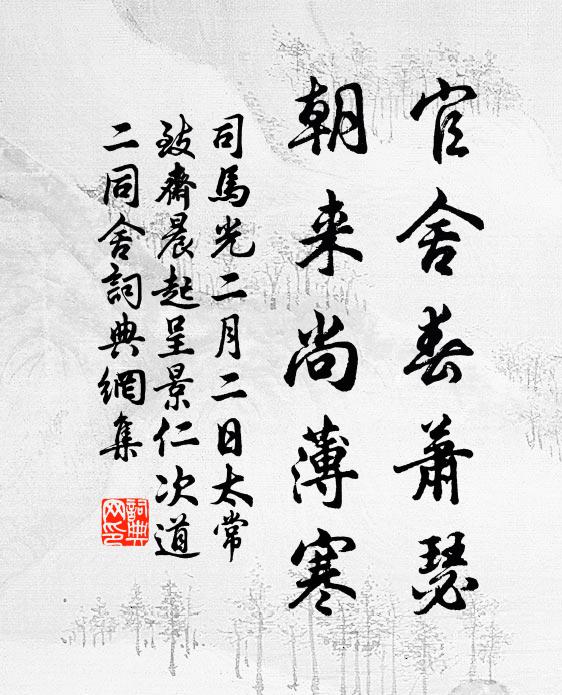 官舍春蕭瑟
朝来尚薄寒
司馬光二月二日太常
致齋晨起呈景仁次道
二同舍詞典網集
詞典網印